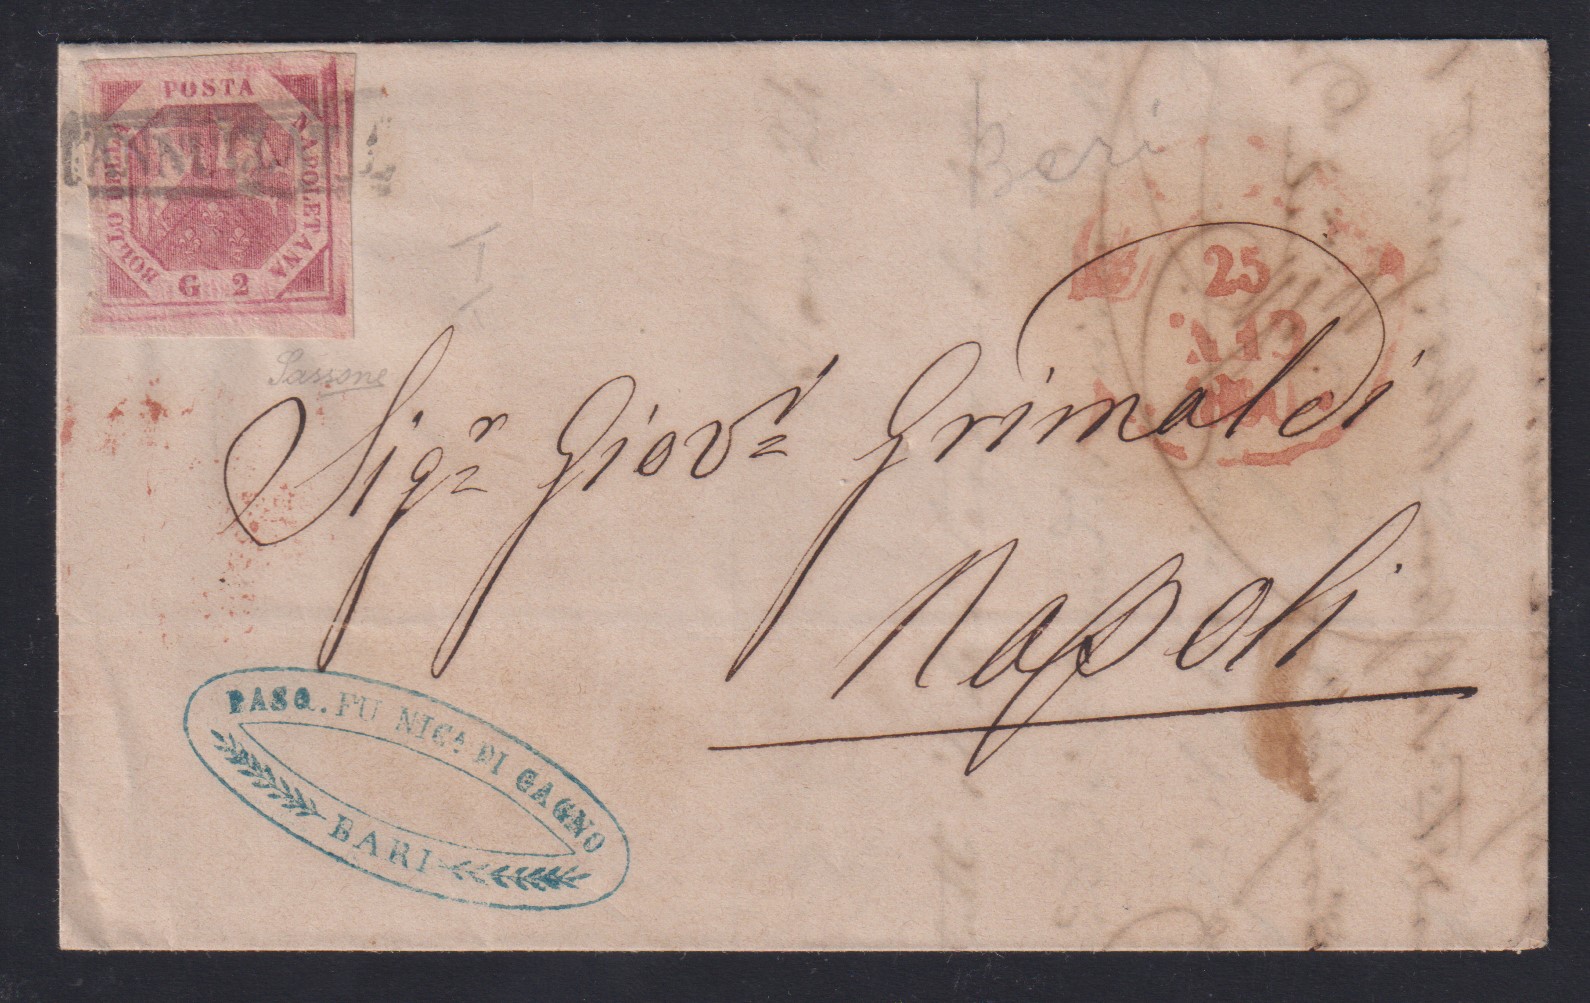 POSTA
NAPOLETANA
BOLLO DELLA
G 2
ANNULLATO
Beri
25
1860
Sassone
Sigr Giovi Grimaldi
Napoli
PASQ. FU NICA DI GAGNO
BARI